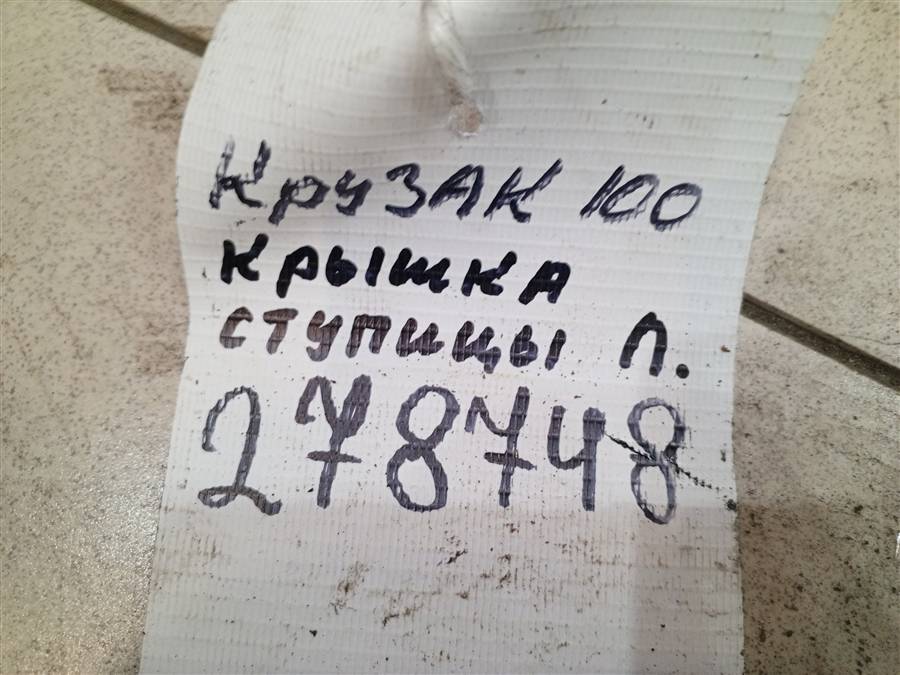 Крузак 100
крышка
ступицы л.
278748